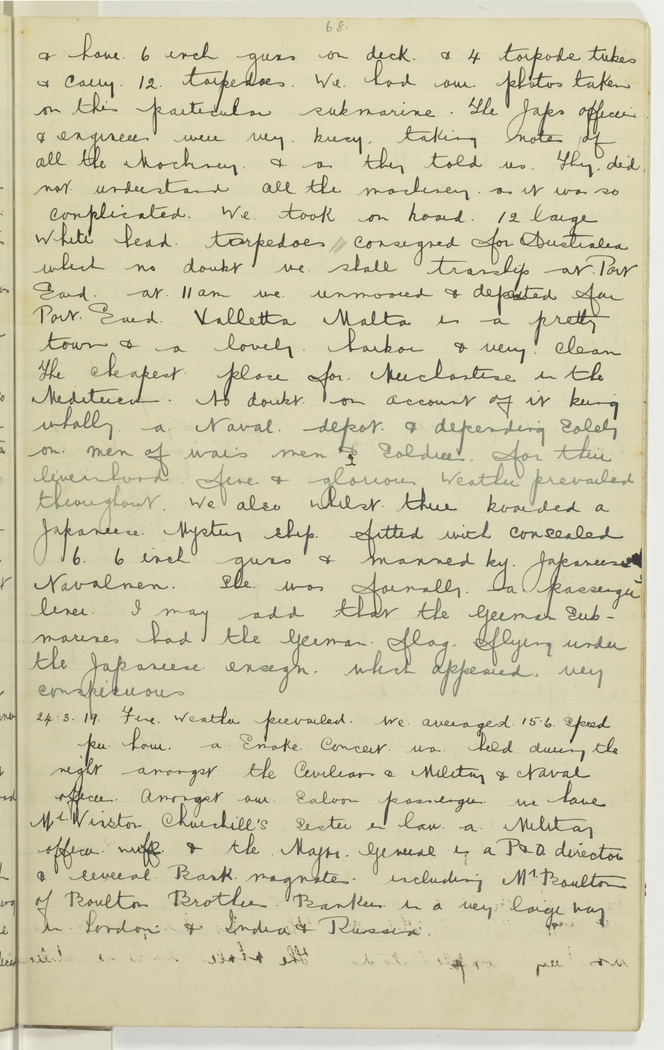 68.
& have 6 inch guns on deck. & 4 torpedo tubes
& carry. 12. torpedoes. We had our photos taken
on this particular submarine. The Japs officers
& engineers were very busy. taking notes of
all the Machinery. & as they told us. They. did.
not understand all the machinery. as it was so
complicated. We took on board. 12 large
White head. torpedoes // consigned for Australia
which no doubt we shall tranship at Port
Said. at 11 am we unmoored & departed for
Port Said. Valletta Malta is a pretty
town & a lovely. harbor & very. clean
The cheapest place for Merchantise in the
Mediteren. No doubt on account of it being
wholly a Naval depot. & depending Solely
on men of wars men & Soldiers. for their
liveirhood. fine & glorious Weather prevailed
throughout. We also whilst there boarded a
Japaneese Mystery ship. fitted with concealed
6. 6 inch guns & manned by. Japaneese
Navalmen. She was formally. a passenger
liner. I may add that the German Sub-
marines had the German flag. flying under
the Japaneese ensegn. which appeared. very
conspicuous
24.3.19. Fine Weather prevailed. We averaged 15.6. Speed
per hour. a Smoke Concert was held during the
night amongst the Civilians & Military & Naval
officers. Amongst our Saloon passengers we have
Mr Winston Churchill's Sister in law a Military
officer wife & the Major General is a P&O director
& several Bank magnates. including Mr Boulton
of Boulton Brothers. Bankers in a very large way
in London & India & Russia.